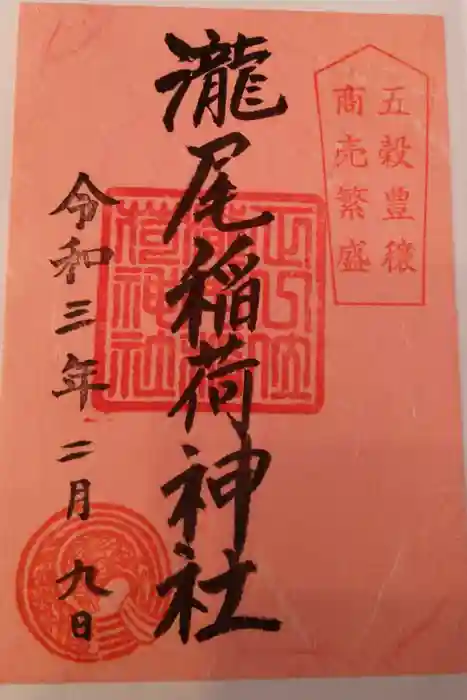 五穀豊穣
商売繁盛
瀧尾稲荷神社
令和三年二月九日